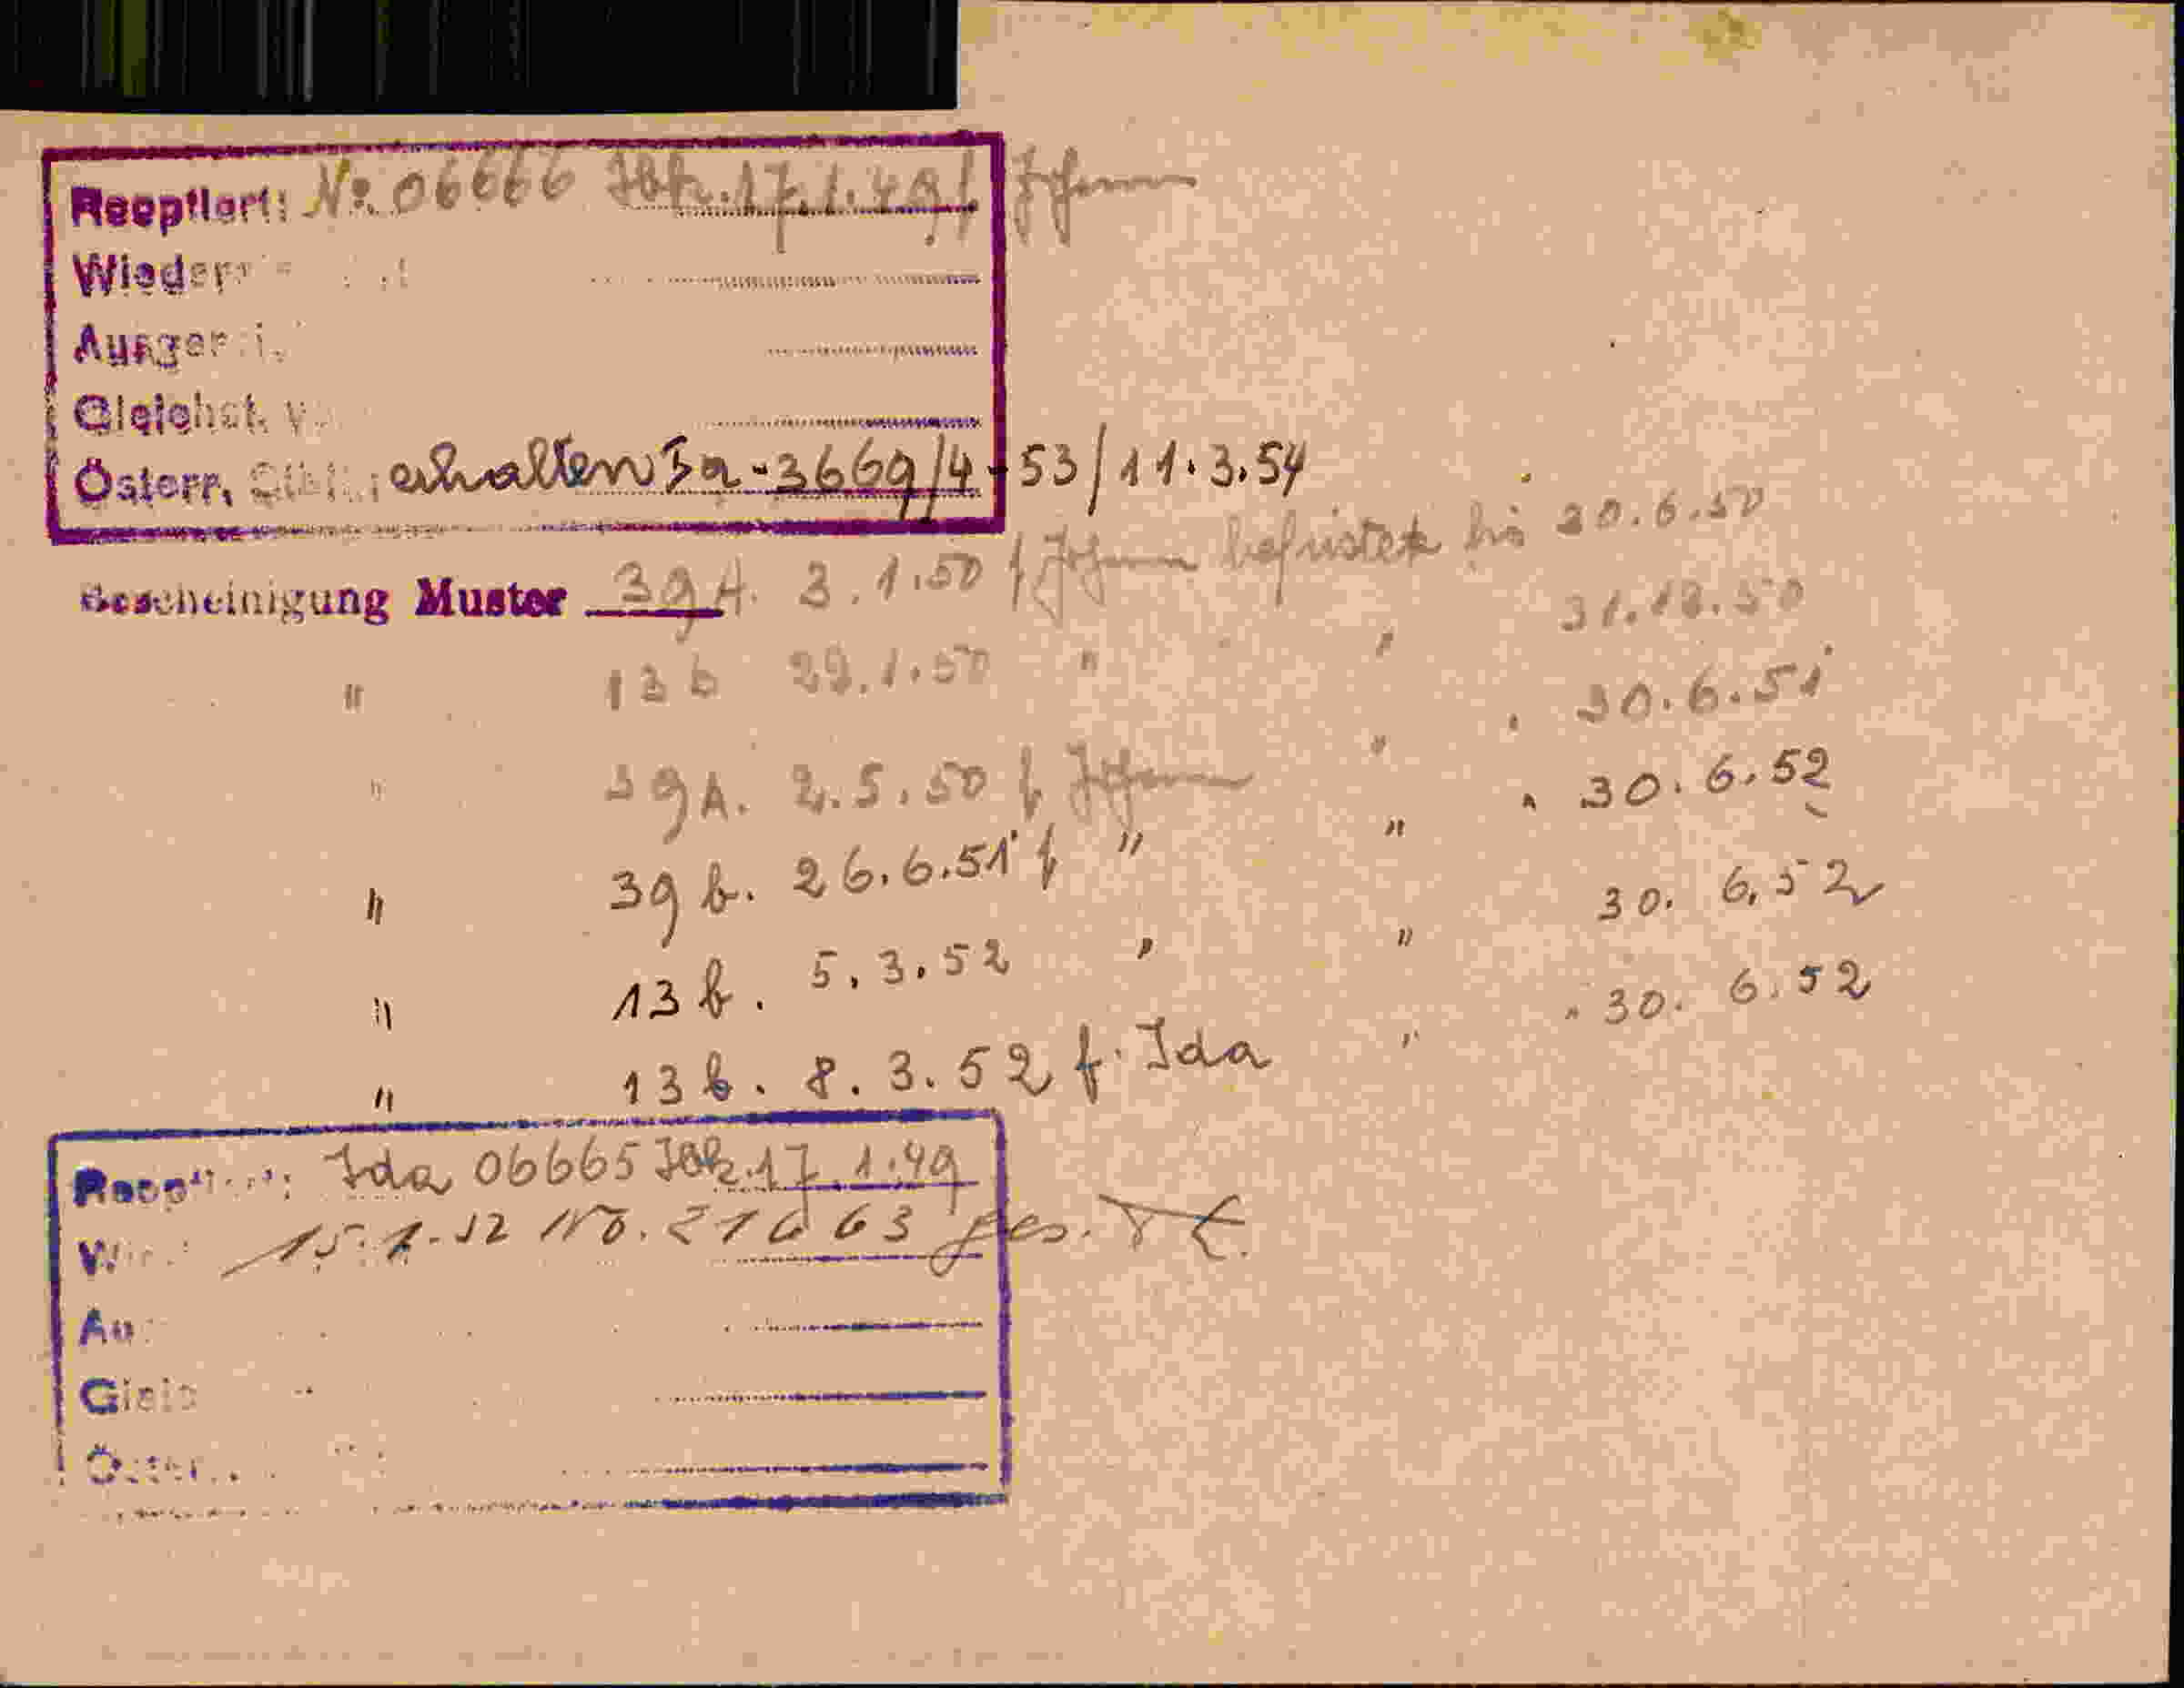 Reoptiert: No. 06666 Ibk. 17.1.49 f Johann
Österr. erhalten Ia-3669/4-53/11.3.54
Bescheinigung Muster 39A. 3.1.50 f Johann befristet bis 30.6.50
" 13b 29.1.50 " " 31.12.50
" 39A. 2.5.50 f Johann " " 30.6.51
" 39b. 26.6.51 f " " " 30.6.52
" 13b. 5.3.52 " " 30.6.52
" 13b. 8.3.52 f. Ida " " 30.6.52
Reoptiert: Ida 06665 Ibk. 17.1.49
15.1.52 No. 21663